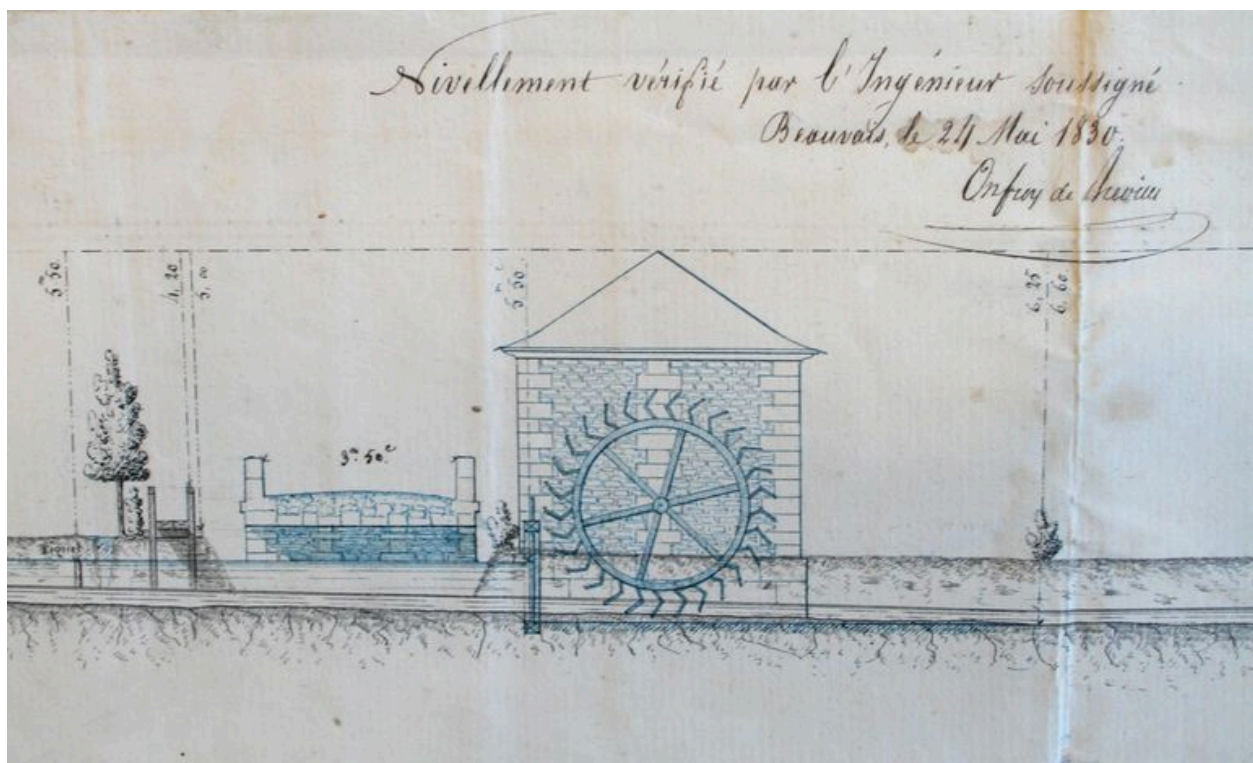 Nivellement vérifié par l'Ingénieur soussigné
Beauvais, le 24 Mai 1830.
Onfroy de
4. 20
5. 00
6. 25
6. 60
3.m 50.c